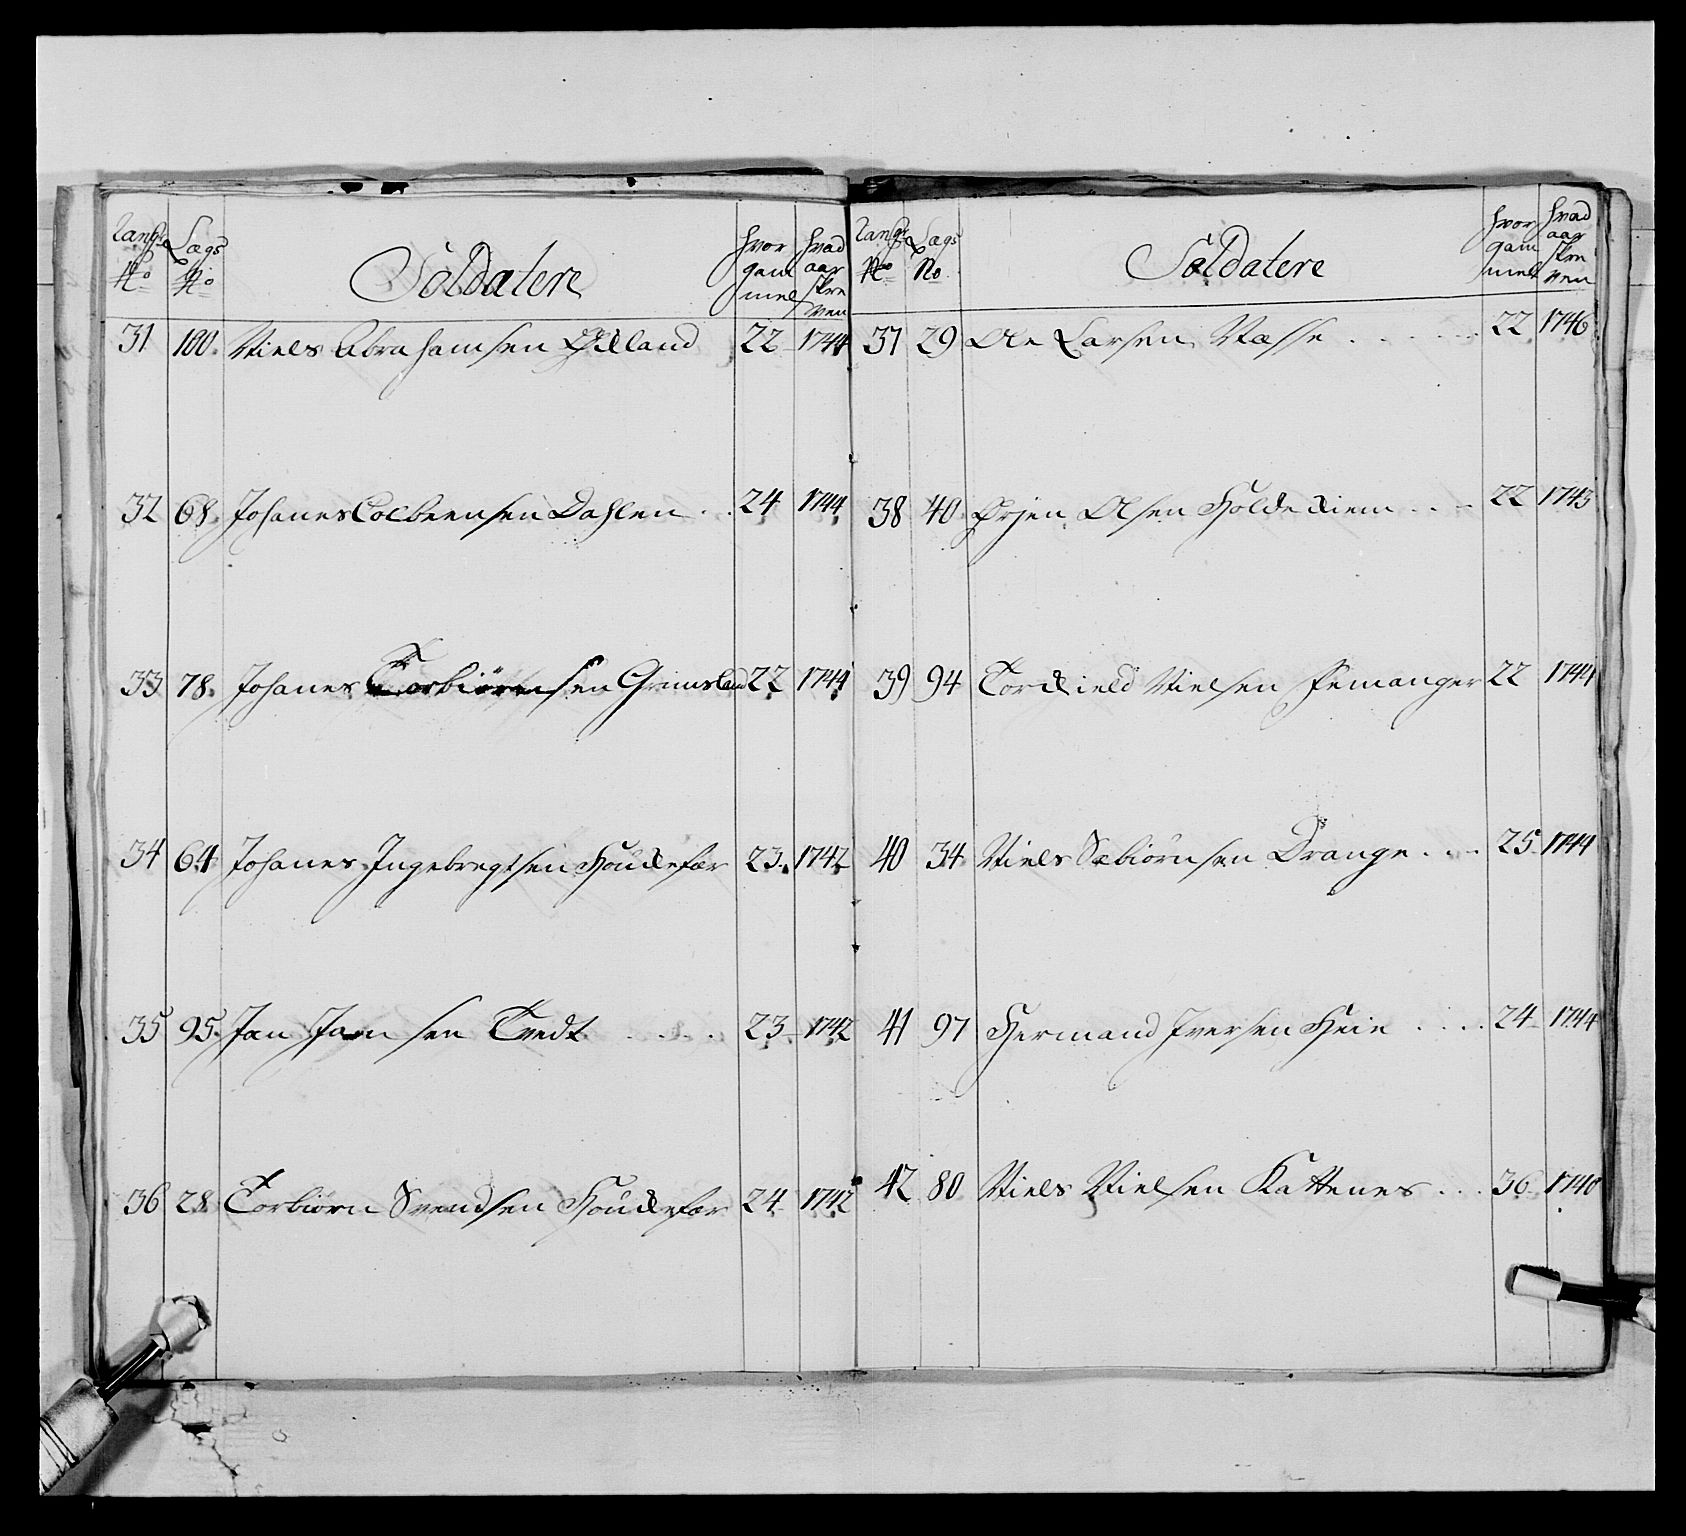 Rangs No | Lægs No | Soldatere | hvor gam mel | hvad aar skre ven
31 | 100. | Niels Abrahamsen Ædland | 22 | 1744
32 | 68. | Johanes Colbeensen Dahlen . . | 24 | 1744
33 | 78. | Johanes Torbiørensen Grimsland | 22 | 1744
34 | 64 | Johanes Ingebregtsen Houkefær | 23. | 1742
35 | 95. | Jan Jansen Tvedt . . . . | 23 | 1742
36 | 28 | Torbiørn Svendsen Houkefær | 24 | 1742
Rangs No | Lægs No. | Soldatere | hvor gam mel | hvad aar skre ven
37 | 29 | Ole Larsen Næsse . . . . . | 22 | 1746
38 | 40 | Ørjen Olsen Holdekiem . . . | 22 | 1743
39 | 94 | Torkield Nielsen Femanger | 22 | 1744
40 | 34 | Niels Sæbiørnsen Drange . . . | 25 | 1744
41 | 97 | Hermand Iversen Heie . . . . | 24 | 1744
42 | 80 | Niels Nielsen Kattenes . . . | 36 | 1740